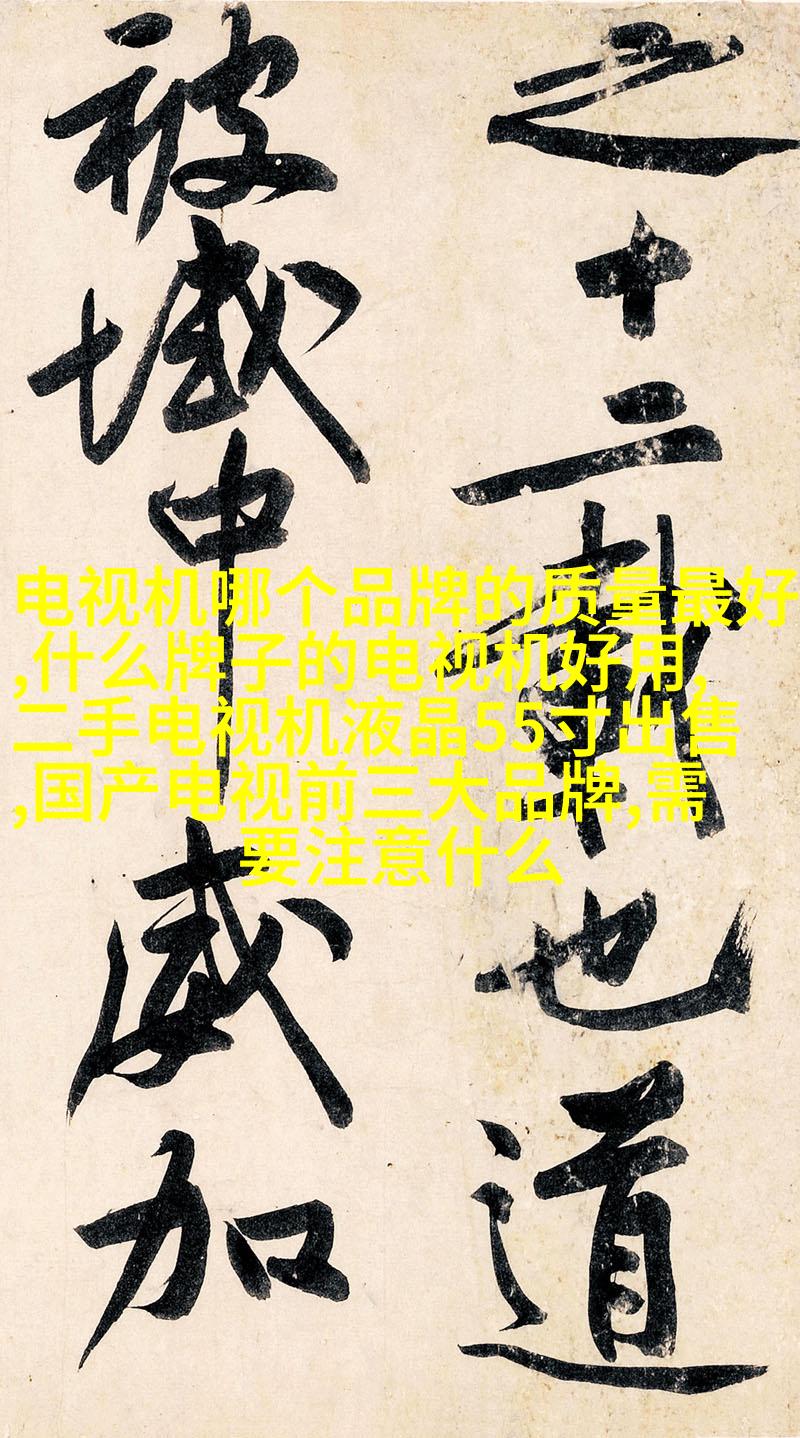 之十二載也道
被域中威加
电视机哪个品牌的质量最好
,什么牌子的电视机好用,
二手电视机液晶55寸出售
,国产电视前三大品牌,需
要注意什么